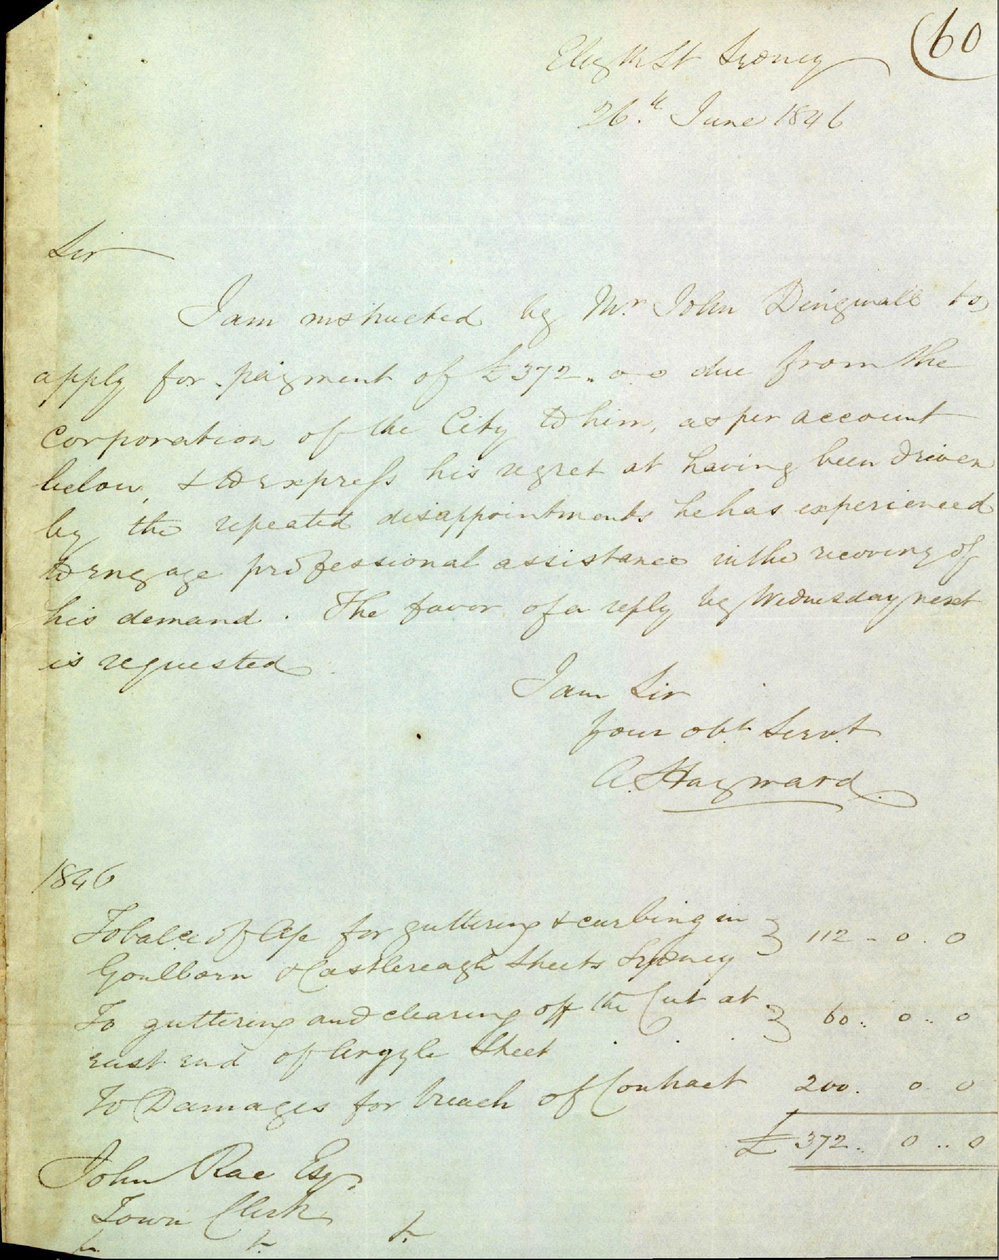 60
Elizth St Sydney
26.th June 1846
Sir
I am instructed by Mr John Dingwall to
apply for payment of £372..0 0 due from the
corporation of the City to him, as per account
below, & to express his regret at having been driven
by the repeated disappointments he has experienced
to engage professional assistance in the recovery of
his demand. The favor of a reply by Wednesday next
is requested
I am Sir
Your obt Servt
A. Hayward
1846
To balce of a/c for guttering & curbing in } 112 .. 0 . 0
Goulborn & Castlereagh Streets Sydney
To guttering and clearing off the Cut at } 60 .. 0 .. 0
east end of Argyle Street
To Damages for breach of Contract 200 . 0 0
£ 372 .. 0 .. 0
John Rae Esq.
Town Clerk